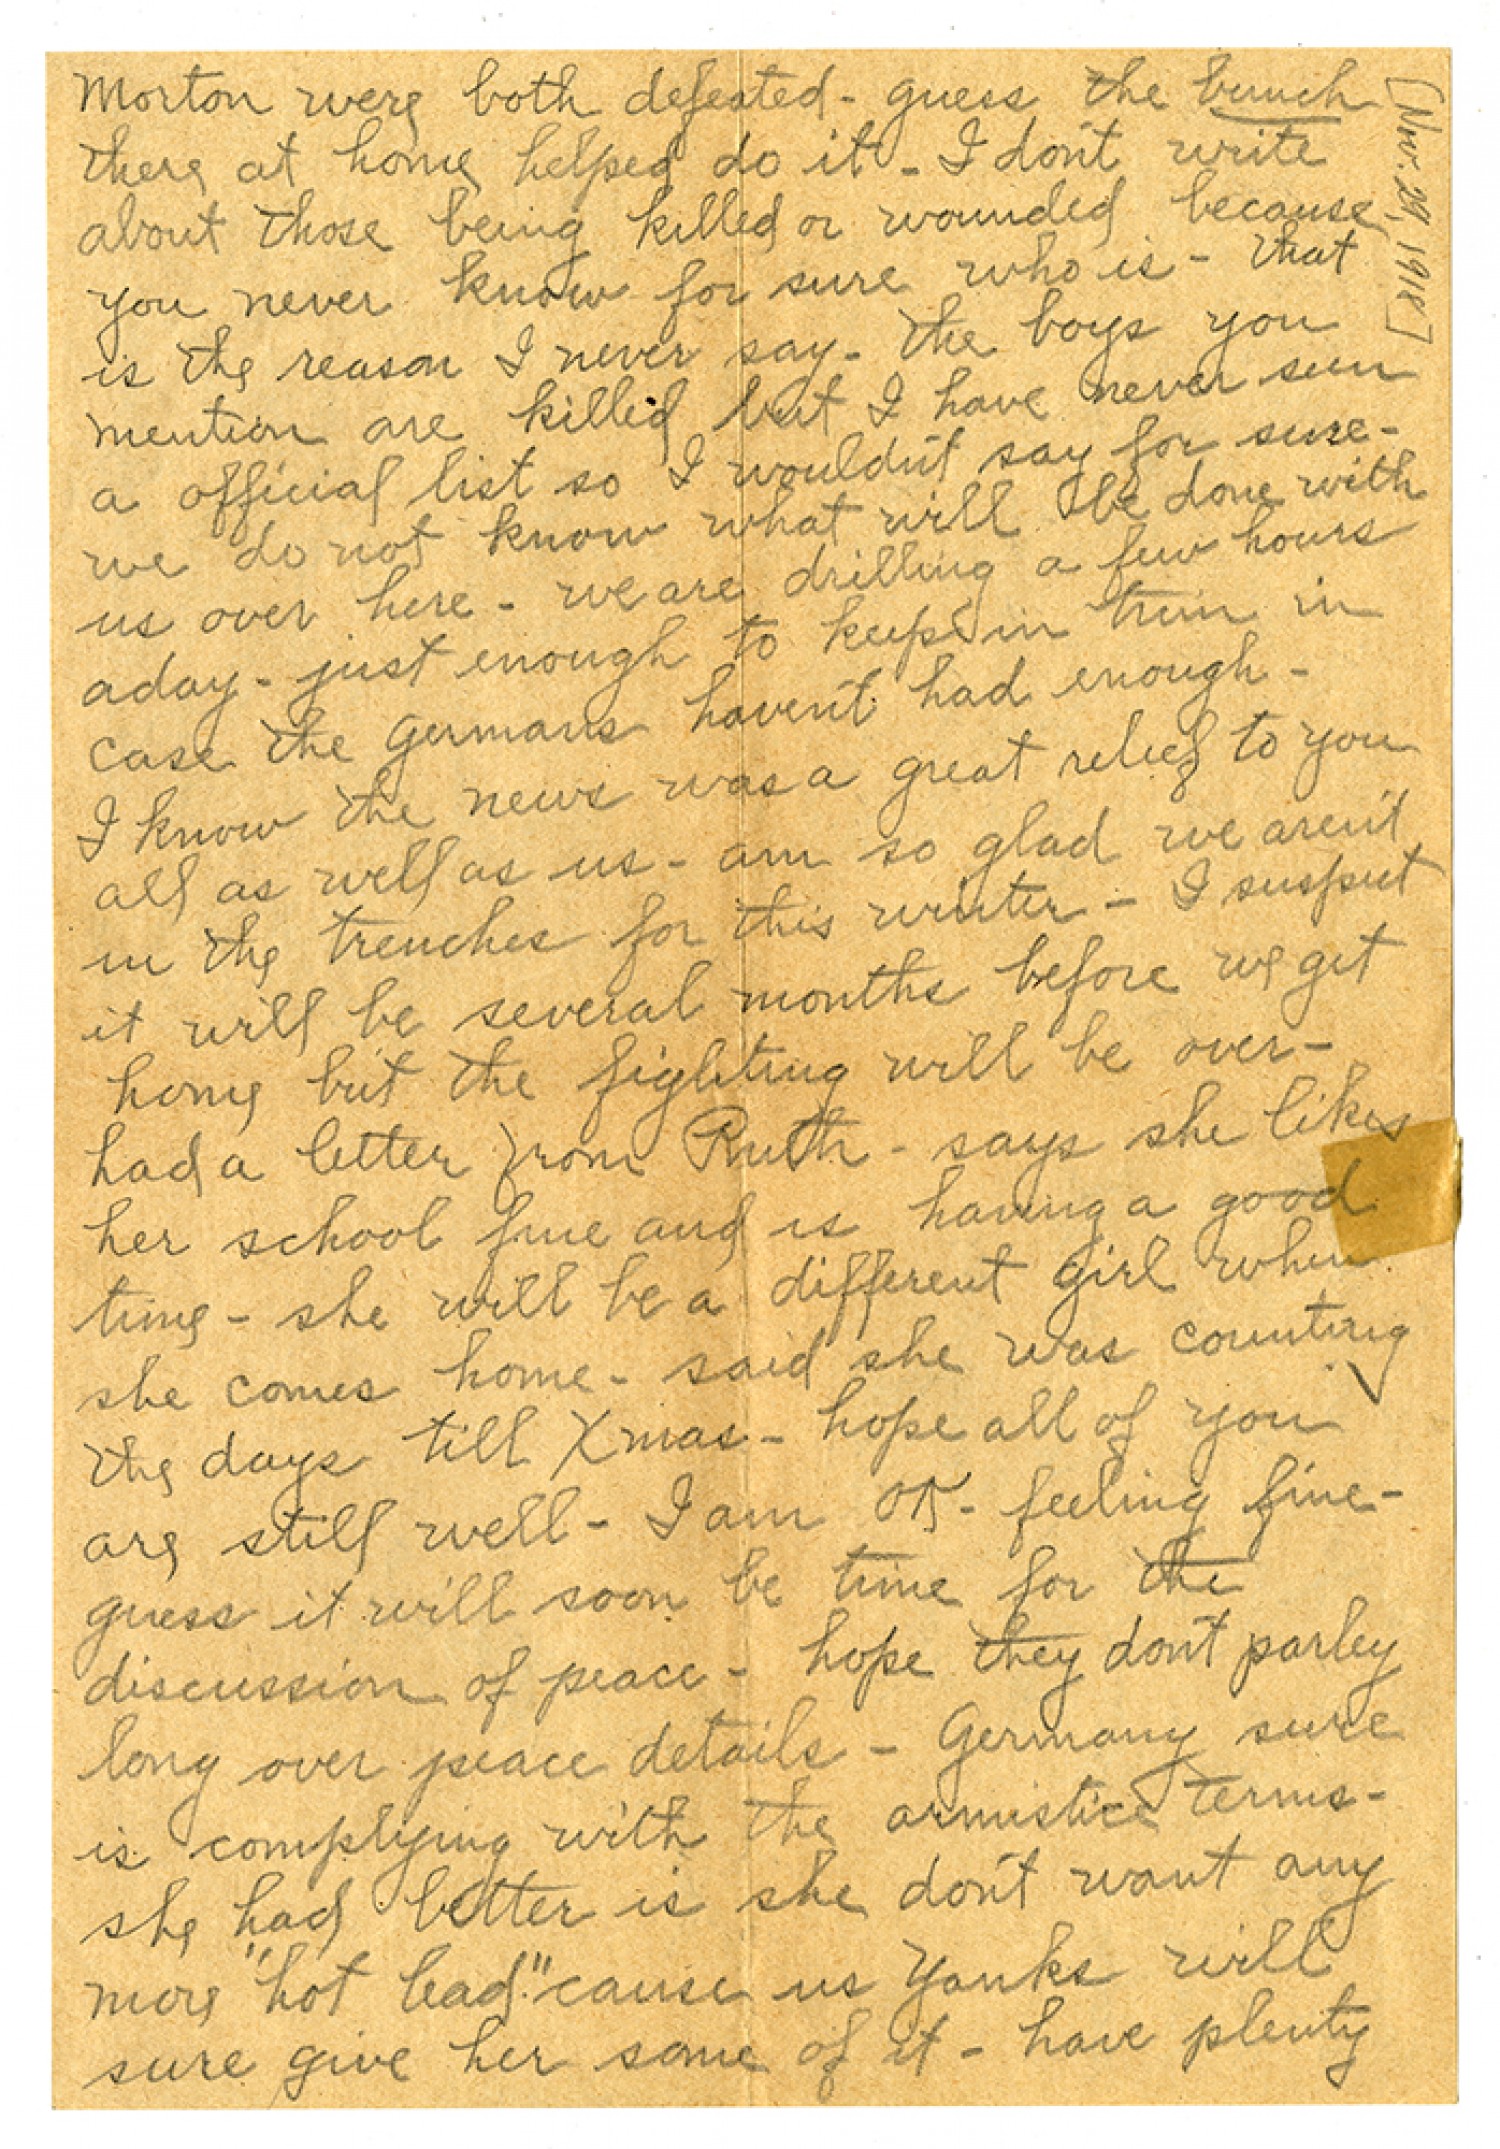 Morton were both defeated - guess the bunch
there at home helped do it - I don't write
about those being killed or wounded because
you never know for sure who is - that
is the reason I never say - the boys you
mention are killed but I have never seen
a official list so I wouldn't say for sure -
we do not know what will be done with
us over here - we are drilling a few hours
a day - just enough to keep in trim in
case the Germans haven't had enough -
I know the news was a great relief to you
all as well as us - am so glad we aren't
in the trenches for this winter - I suspect
it will be several months before we get
home but the fighting will be over -
had a letter from Ruth - says she likes
her school fine and is having a good
time - she will be a different girl when
she comes home - said she was counting
the days till Xmas - hope all of you
are still well - I am OK - feeling fine -
guess it will soon be time for the
discussion of peace - hope they don't parley
long over peace details - Germany sure
is complying with the armistice terms -
she had better is she don't want any
more "hot lead" cause us Yanks will
sure give her some of it - have plenty
[Nov. 24, 1918]